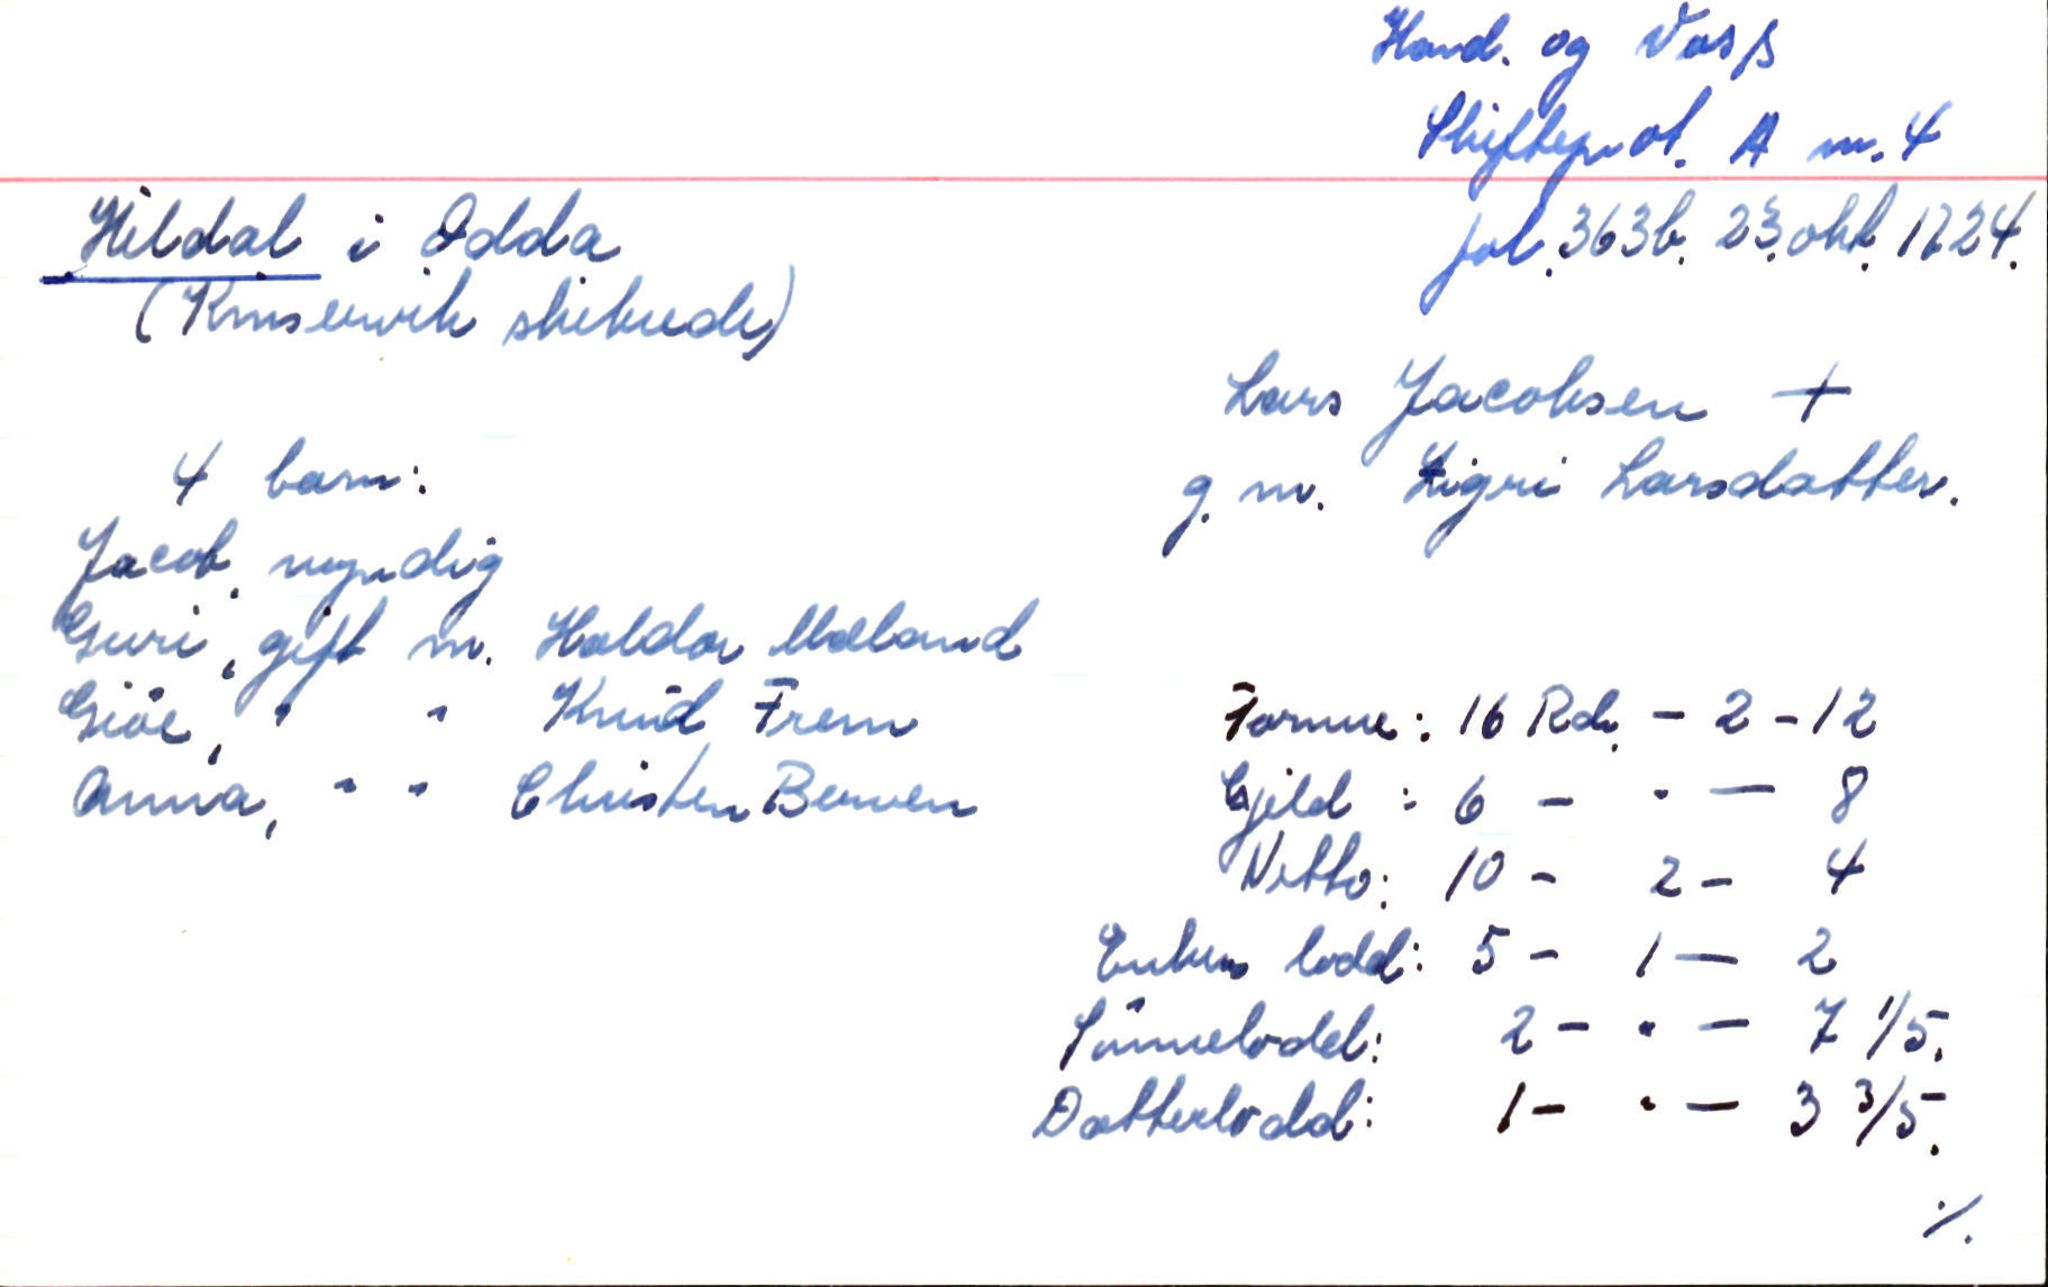 Hard. og Voss
Skifteprot. A nr. 4
fol. 363b. 23. okt. 1724.
Hildal i Odda
(Kinservik skibrede)
Lars Jacobsen +
g. m. Sigri Larsdatter.
4 barn:
Jacob, myndig
Guri, gift m. Haldor Mæland
Giöe, " " Knud Frem
Anna, " " Christen Berven
Formue: 16 Rd. - 2 - 12
Gjeld : 6 - " - 8
Netto: 10 - 2 - 4
Enkens lodd: 5 - 1 - 2
Sönnelodd: 2 - " - 7 1/5.
Dotterlodd: 1 - " - 3 3/5.
./.